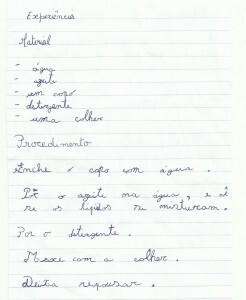 Experiência
Material
- água
- azeite
- um copo
- detergente
- uma colher
Procedimento
Enche o copo com água.
o azeite na água, e
se os lípidos se misturam.
Por o detergente.
Mexe com a colher.
Deixa repousar.